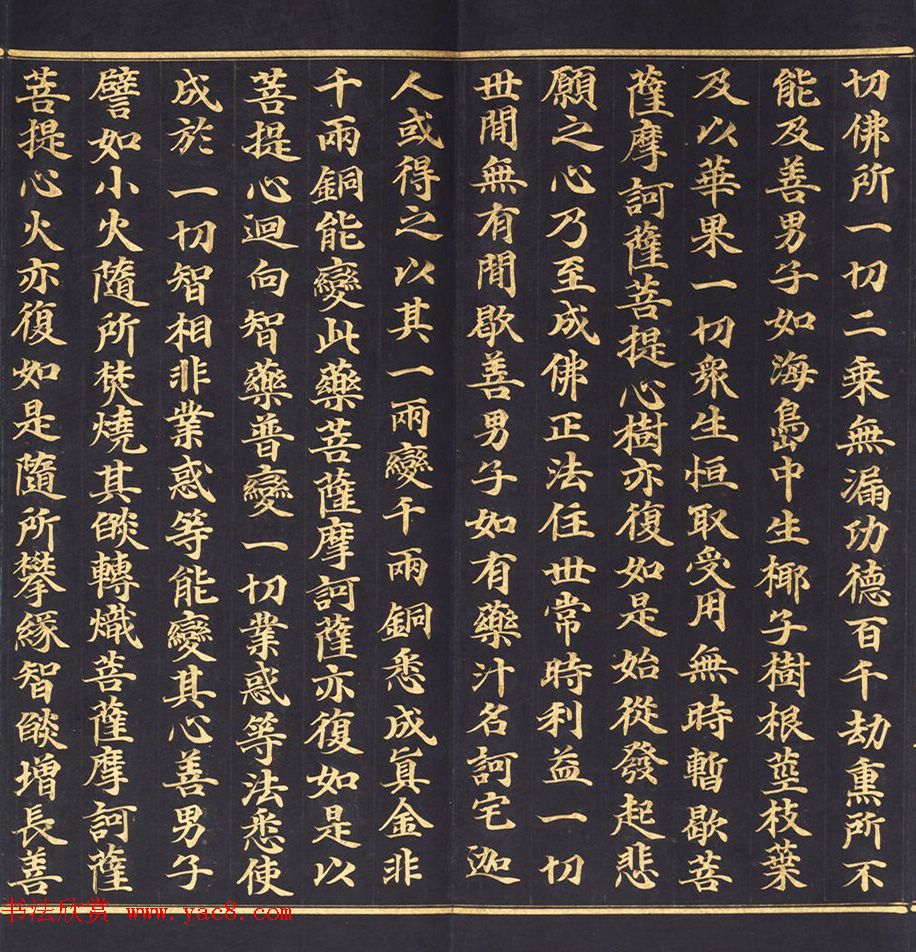 切佛所一切二乘無漏功德百千劫熏所不
能及善男子如海島中生椰子樹根莖枝葉
及以華果一切眾生恒取受用無時暫歇菩
薩摩訶薩菩提心樹亦復如是始從發起悲
願之心乃至成佛正法住世常時利益一切
世間無有間歇善男子如有藥汁名訶宅迦
人或得之以其一兩變千兩銅悉成真金非
千兩銅能變此藥菩薩摩訶薩亦復如是以
菩提心迴向智藥普變一切業惑等法悉使
成於一切智相非業惑等能變其心善男子
譬如小火隨所焚燒其燄轉熾菩薩摩訶薩
菩提心火亦復如是隨所攀緣智燄增長善
书法欣赏 www.yac8.com